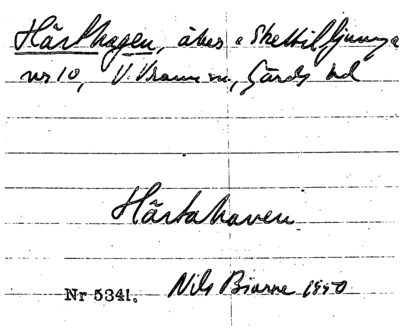 Hårthagen, åker å Skettilljunga
nr 10, V. Vram sn, Gärds hd
Hårtahaven
Nr 5341. Nils Bjarne 1950